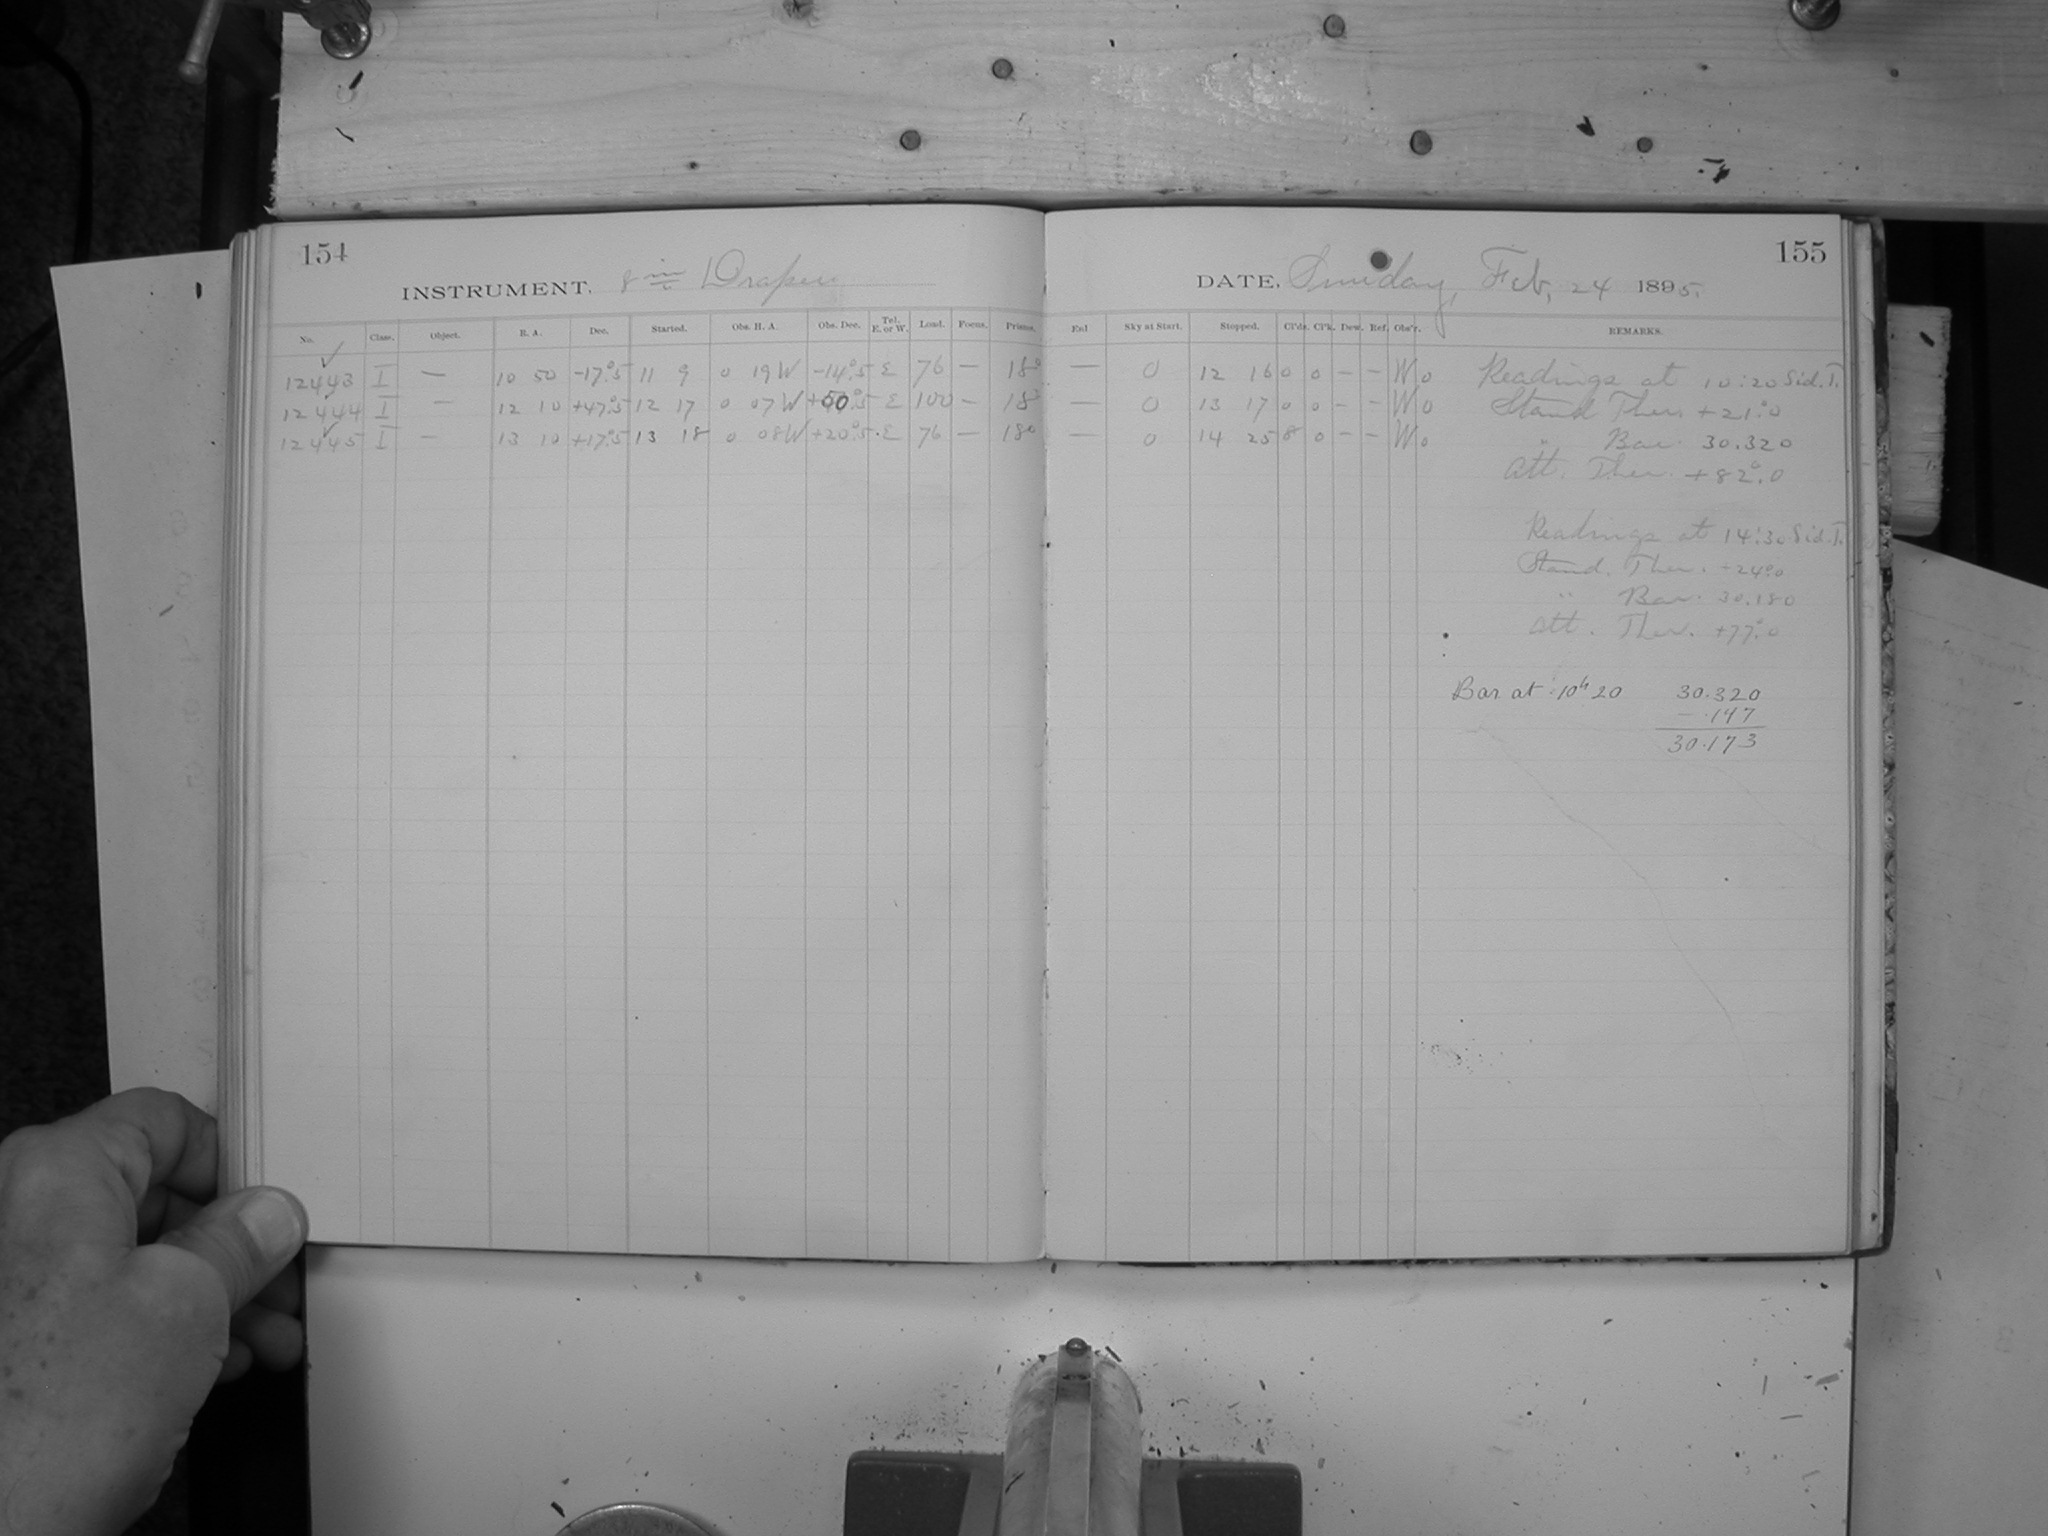 154
INSTRUMENT, 8 in Draper
No. Class. Object. R. A. Dec. Started. Obs. H. A. Obs. Dec. Tel. E. or W. Load. Focus. Prisms.
12443 I — 10 50 -17°.5 11 9 0 19 W -14°.5 E 76 — 18°
12444 I — 12 10 +47°.5 12 17 0 07 W +50°.5 E 100 — 18°
12445 I — 13 10 +17°.5 13 18 0 08 W +20°.5 E 76 — 18°
155
DATE, Sunday, Feb, 24 1895.
Exl Sky at Start. Stopped. Cl'ds. Cl'k. Dew. Ref. Obs'r. REMARKS.
— 0 12 16 0 0 — — Wo Readings at 10:20 Sid. T.
— 0 13 17 0 0 — — Wo Stand Ther +21°.0
— 0 14 25 8 0 — — Wo " Bar. 30.320
Att. Ther. +82°.0
Readings at 14:30 Sid. T.
Stand. Ther. +24°.0
" Bar. 30.180
Att. Ther. +77°.0
Bar at 10h 20 30.320
- .147
30.173